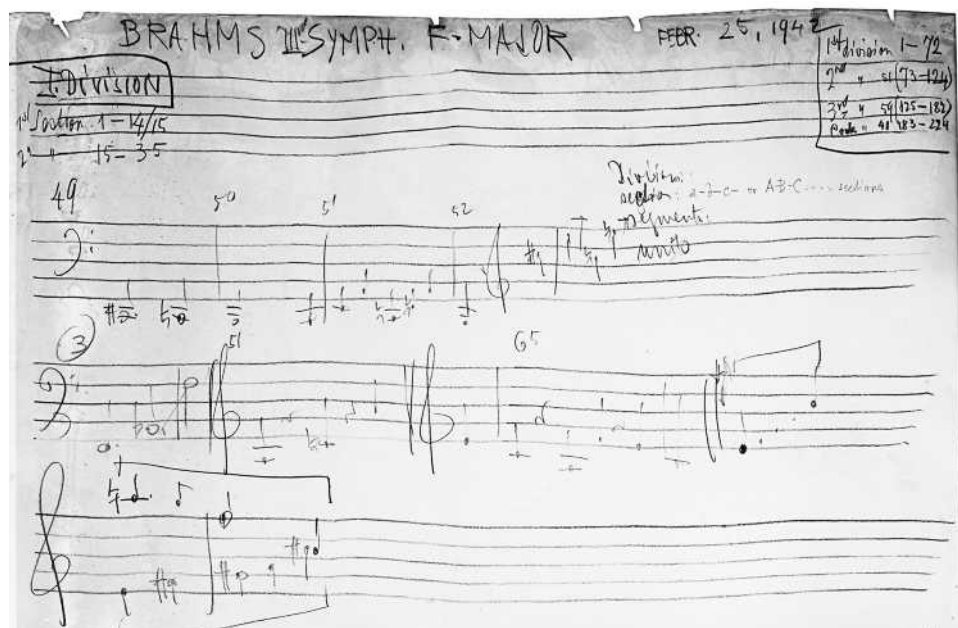 BRAHMS III SYMPH. F-MAJOR
FEBR. 25, 1942
1st division 1-72
2nd " 51 (73-124)
3rd " 59 (125-182)
Coda " 41 183-224
I. DIVISION
1st Section 1-14/15
2d " 15-35
Division:
section: a-b-c- or A-B-C---- sections
segments:
units
49
50
51
52
3
51
65